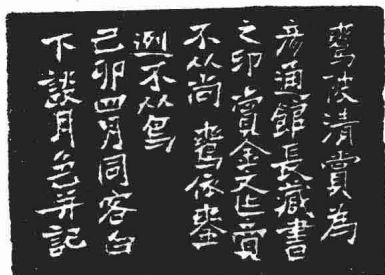 陂清賞為
彥通館長藏書
之印賞金文
不从尚依
不从
己卯四月同客白
下談月色并記